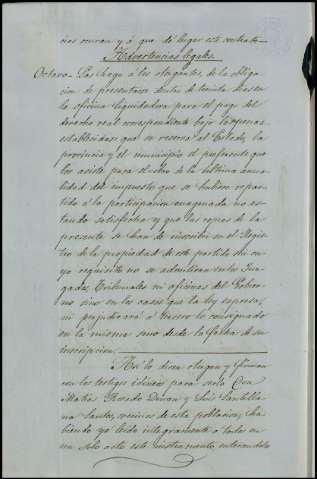 cios ocuran y á que dé lugar este contrato.
Advertencias legales.
Octavo. Las hago á los otorgantes, de la obligacion
de presentarse dentro de treinta dias en
la oficina liquidadora para el pago del
derecho real correspondiente bajo las penas
establecidas, que se reserva al Estado, la
provincia y el municipio el preferente que
les asiste para el cobro de la última anualidad
del impuesto que se hubiere repartido
á la participacion enagenada no estando
satisfecha y que las copias de la
presente se han de inscribir en el Registro
de la propiedad de este partido sin cuyo
requisito no se admitiran en los Juzgados,
Tribunales ni oficinas del Gobierno
sino en los casos que la ley espresa,
ni perjudicará á tercero lo consignado
en la misma sino desde la fecha de su
inscripcion.
Así lo dicen otorgan y firman
con los testigos idóneos para serlo Don
Matias Durán y Luis Santillana
Santos, vecinos de esta poblacion, habiendo
yo leido integramente á todos en
un solo acto este instrumento, enterandolos